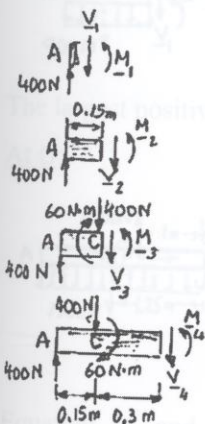 V1
A
M1
400N
0.15m
A
M2
400N
V2
60N·m 400N
A C
M3
400N
V3
400N
M4
A C
400N
60N·m
V4
0.15m 0.3m